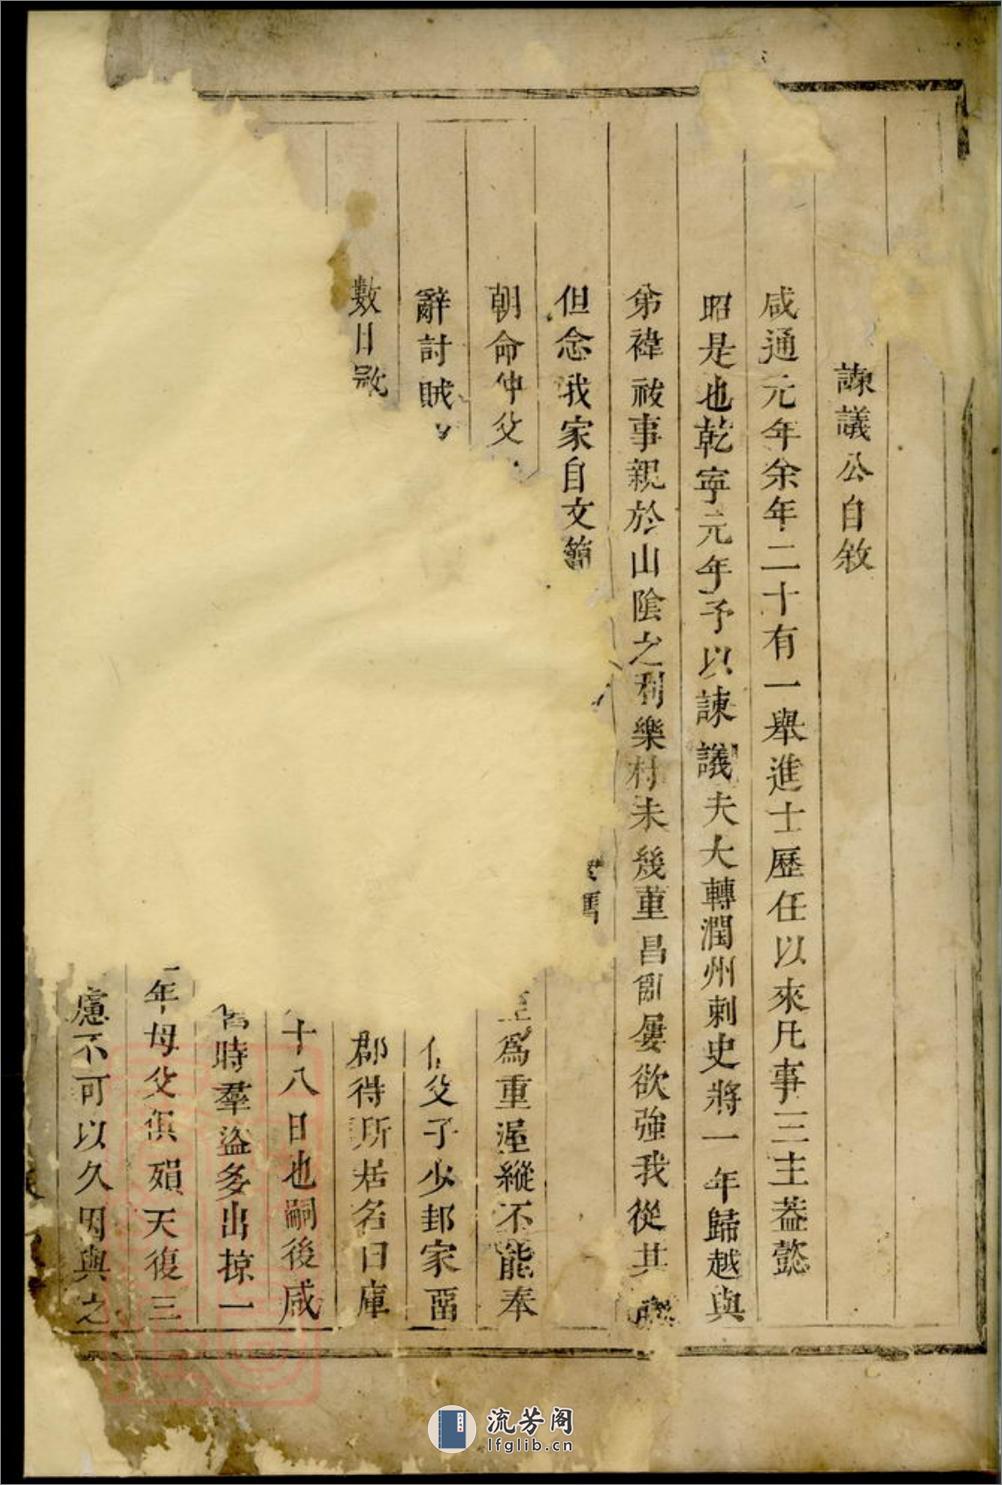 諫議公自敘
咸通元年余年二十有一舉進士歷任以來凡事三主葢懿
昭是也乾寧元年予以諫議夫大轉潤州刺史將一年歸越與
弟褘祓事親於山陰之利樂村未幾董昌亂屢欲強我從其
但念我家自文簡
朝命仲父 為重渥縱不能奉
辭討賊 父子少封家畱
數日 郡得所居名曰庫
十八日也嗣後咸
時羣盜多出掠一
年母父俱殞天復三
慮不可以久因與之
流芳阁
lfglib.cn